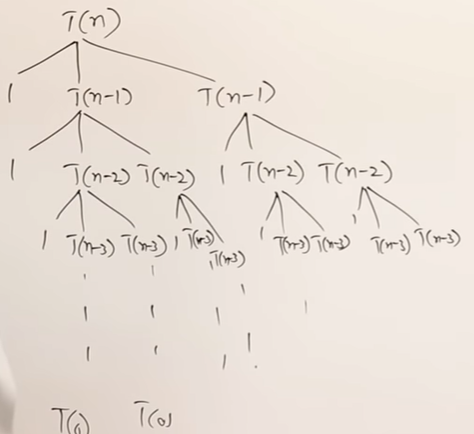 T(n)
1 T(n-1) T(n-1)
1 T(n-2) T(n-2) 1 T(n-2) T(n-2)
1 T(n-3) T(n-3) 1 T(n-3) T(n-3) 1 T(n-3) T(n-3) 1 T(n-3) T(n-3)
T(0) T(0)